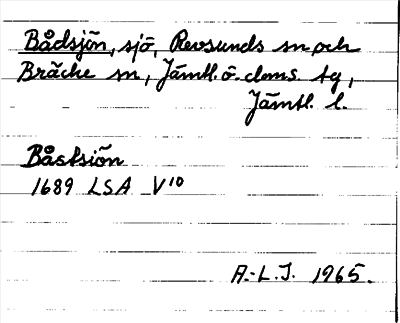 Bådsjön, sjö, Revsunds sn och
Bräcke sn, Jämtl. ö. doms. tg,
Jämtl. l.
Båstsiön
1689 LSA V¹⁰
A.-L.J. 1965.